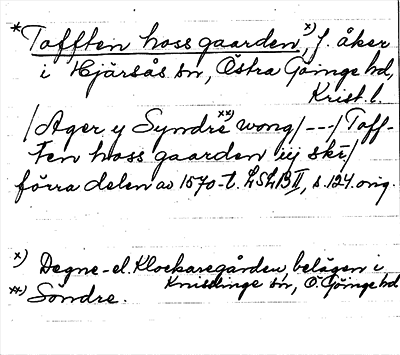 *Tofften hoss gaarden,ˣ⁾ f. åker
i Hjärsås sn, Östra Göinge hd,
Krist. l.
/Ager y Syndreˣˣ⁾ wong/---/Toff-
ten hoss gaarden iij ski/
förra delen av 1570-t. LSLB II, s. 124. orig.
x) Degne- el. Klockaregården, belägen i
Knislinge sn, Ö. Göinge hd
xx) Söndre.